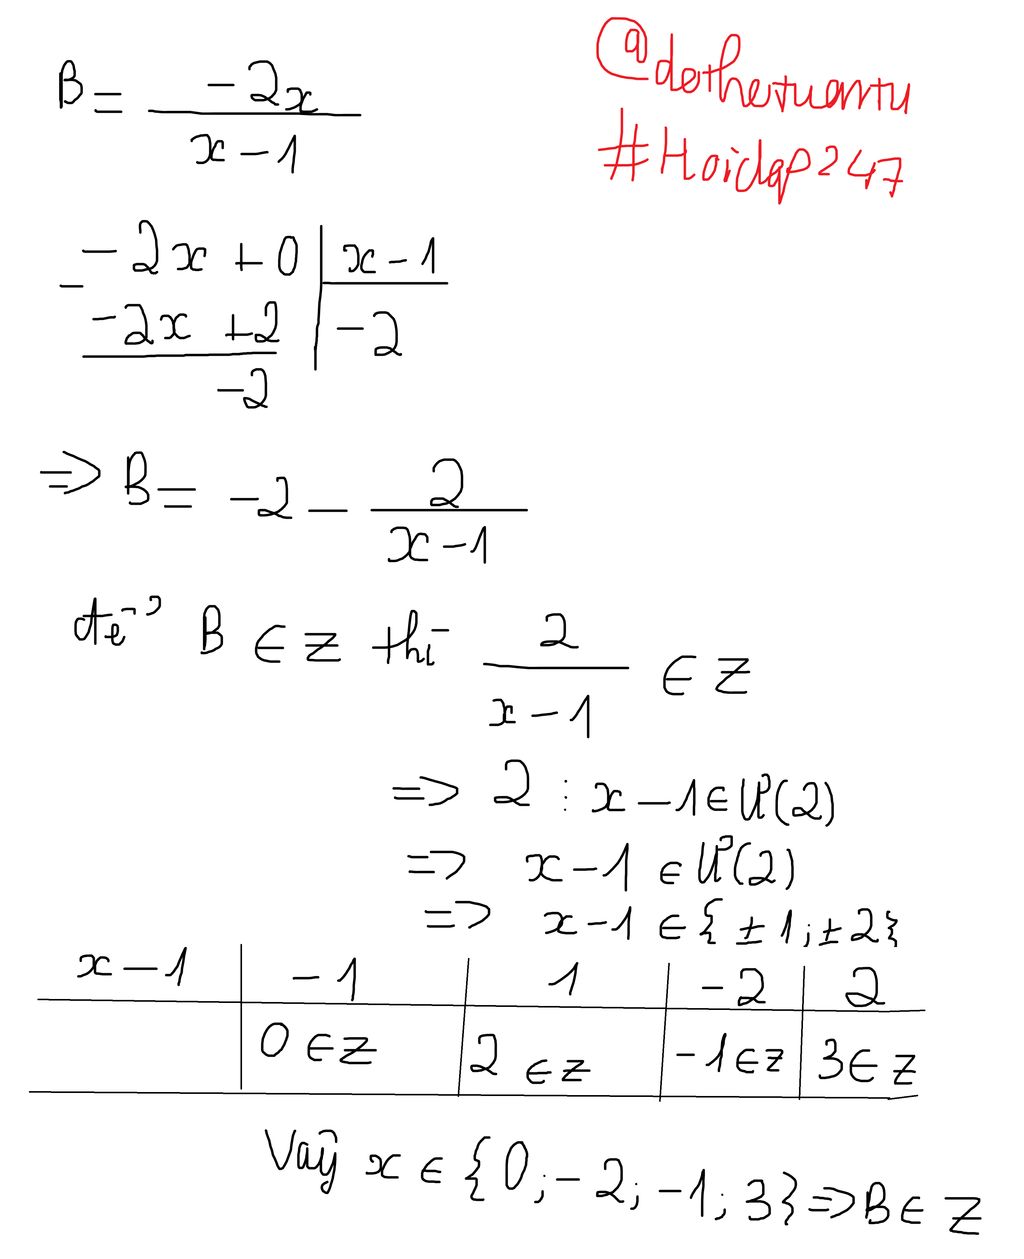 B = -2x / x-1
@dothetuantu
#Hoidap247
-2x + 0 | x-1
-
-2x +2 | -2
-2
=> B = -2 - 2 / x-1
để B ∈ Z thì 2 / x-1 ∈ Z
=> 2 ⋮ x-1 ∈ Ư(2)
=> x-1 ∈ Ư(2)
=> x-1 ∈ {±1;±2}
x-1 | -1 | 1 | -2 | 2
0 ∈ Z | 2 ∈ Z | -1 ∈ Z | 3 ∈ Z
Vậy x ∈ {0;-2;-1;3} => B ∈ Z